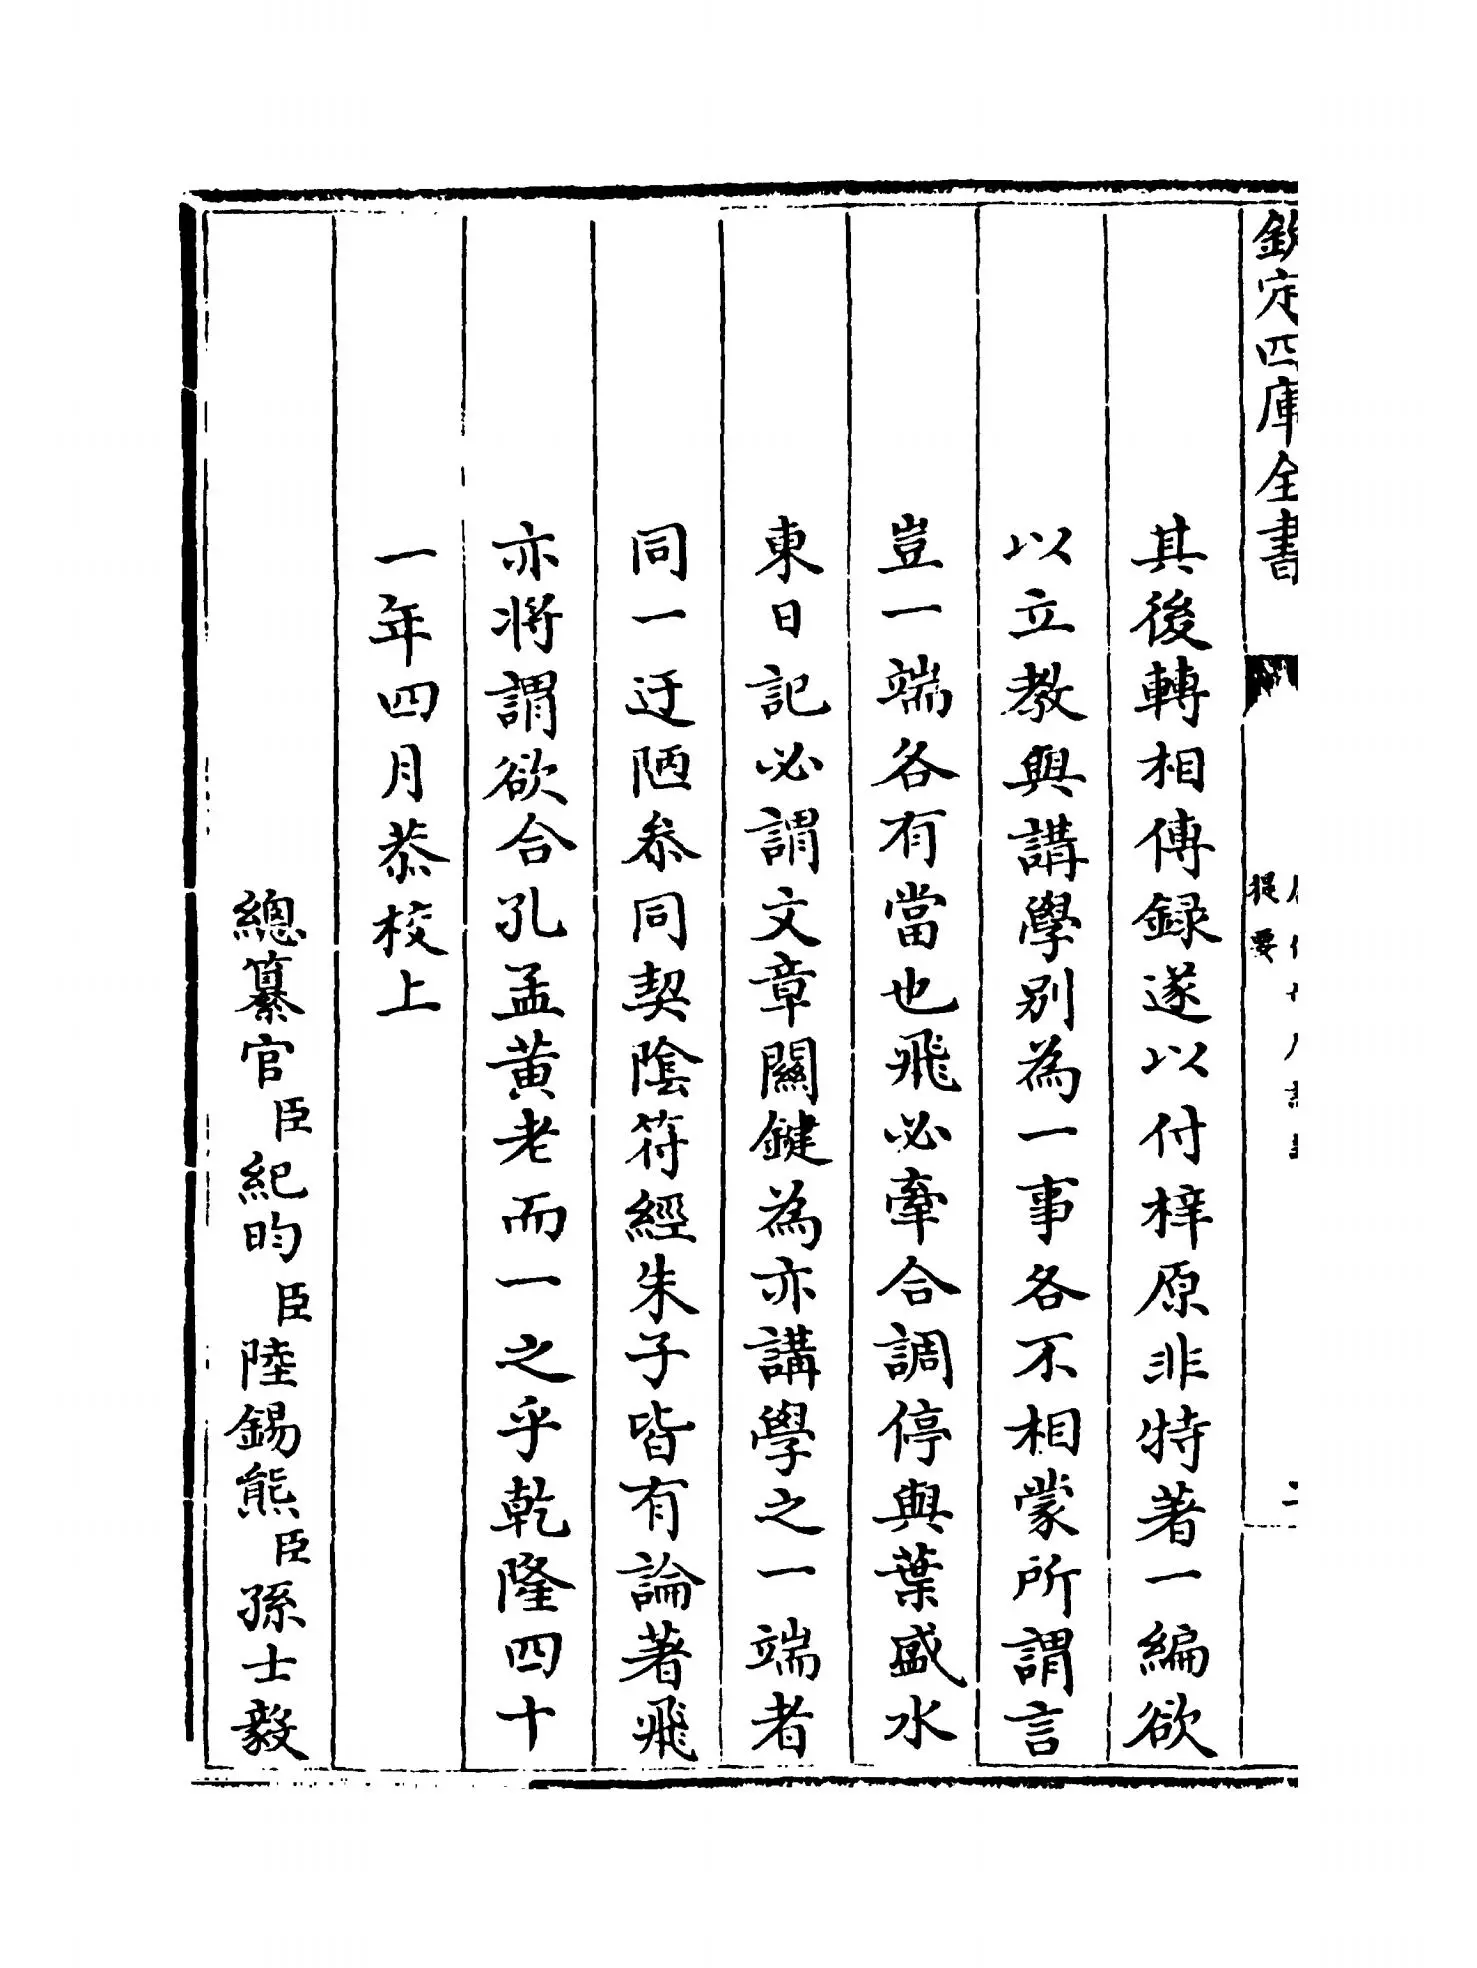 欽定四庫全書
提要
其後轉相傳録遂以付梓原非特著一編欲
以立教與講學别為一事各不相蒙所謂言
豈一端各有當也飛必牽合調停與葉盛水
東日記必謂文章關鍵為亦講學之一端者
同一迂陋叅同契隂符經朱子皆有論著飛
亦将謂欲合孔孟黄老而一之乎乾隆四十
一年四月恭校上
總纂官臣紀昀臣陸錫熊臣孫士毅